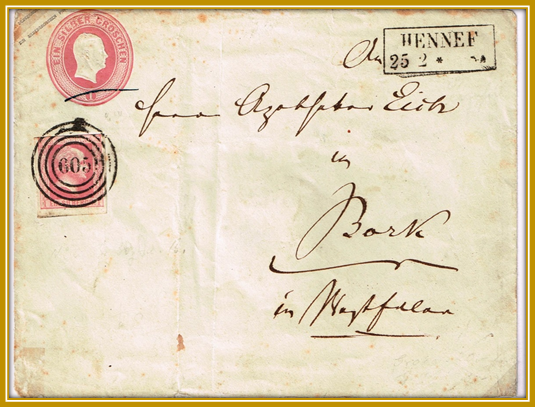 EIN SILBER GROSCHEN
HENNEF
25 2 *
An
Herrn Apotheker Eick
in
Bork
in Westfalen
605